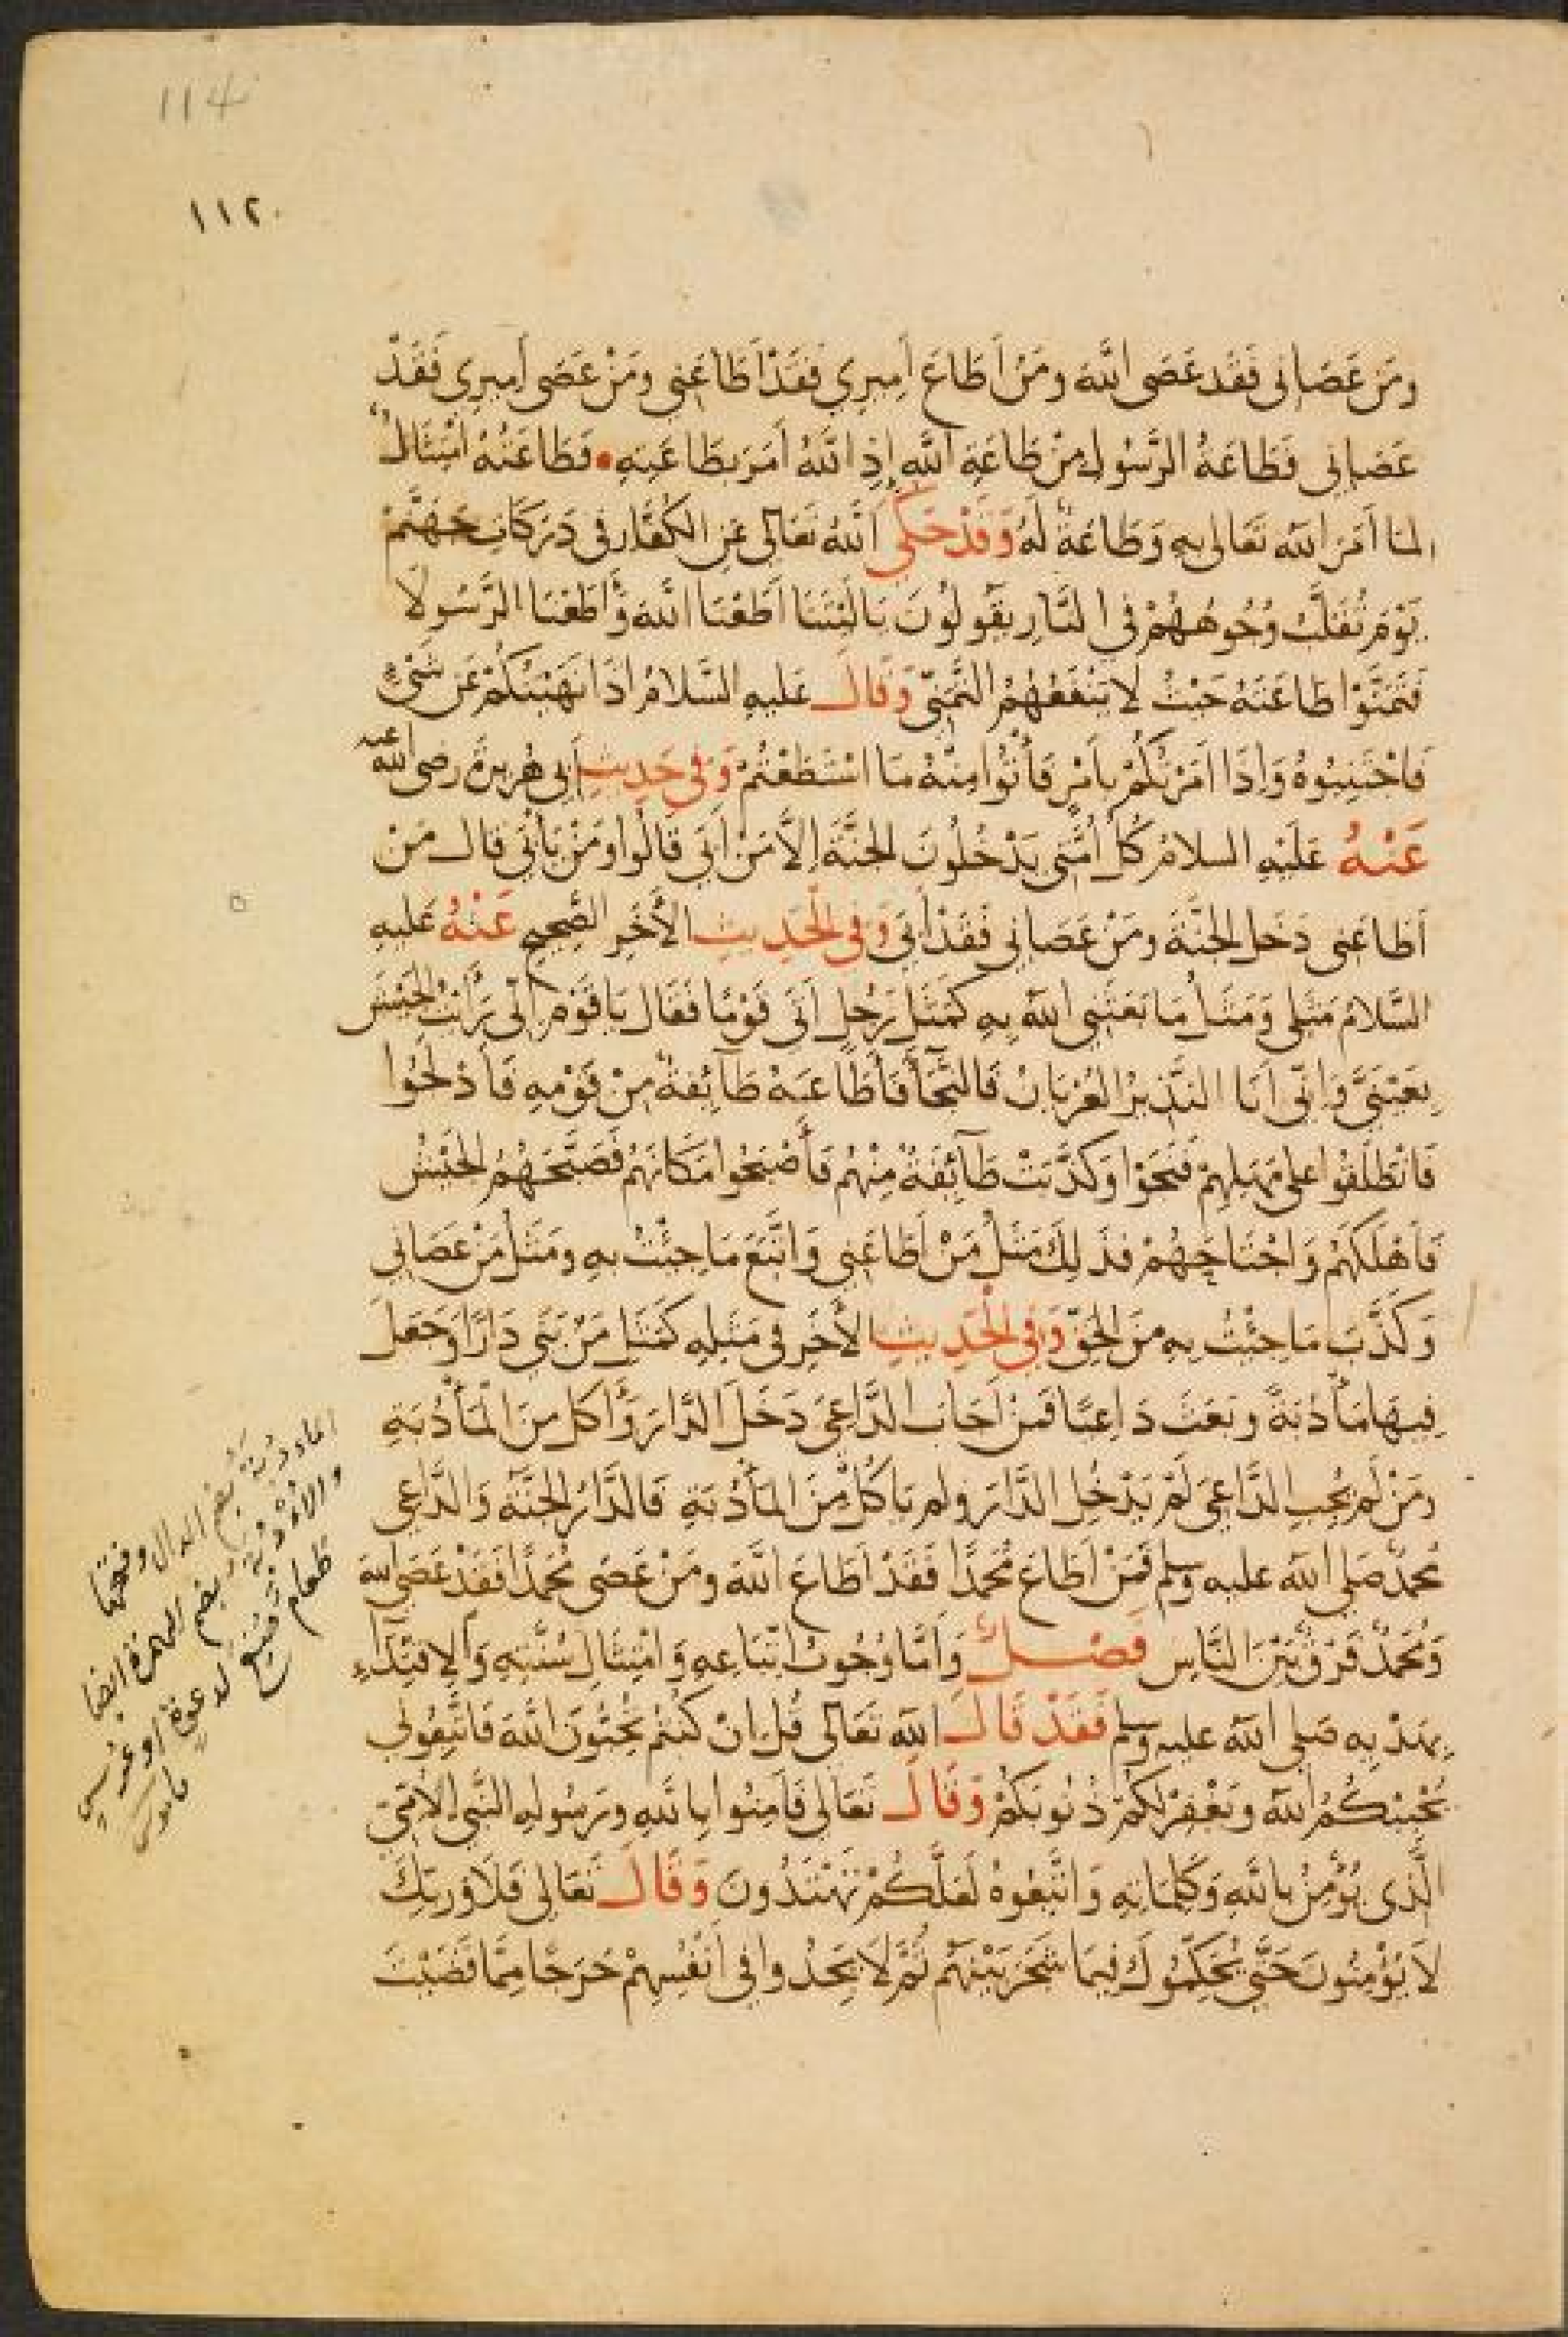 114
١١٢
ومَن عَصَانى فَقَد عَصَى اللّهَ ومَنْ اَطَاعَ اَمِيرِي فَقَدْ اَطَاعَنِى ومَنْ عَصَى اَمِيرِى فَقَدْ
عَصَانِى فَطَاعَةُ الرَّسُولِ مِنْ طَاعَةِ اللّهِ إِذِ اللّهُ اَمَرَ بِطَاعَتِهِ فَطَاعَتُهُ امْتِثَالٌ
لمنا اَمَرَ اللّه تَعَالى بِهِ وَطَاعَةٌ لَهُ وَقَدْ حَكَى اللّهُ تَعَالى عَنِ الكُفَّارِ فى دَرَكَاتِ جَهَنَّمَ
يَوْمَ تُقَلَّبُ وُجُوهُهُمْ فى النَّارِ يَقُولُونَ يَالَيْتَنَا اَطَعْنَا اللّهَ وَأَطَعْنَا الرَّسُولَا
فَتَمَنَّوْا طَاعَتَهُ حَيْثُ لا يَنْفَعُهُمُ التَّمَنِّى وَقَالَ عَليهِ السَّلامُ اذَا نَهَيْتُكُمْ عَن شَىْءٍ
فَاجْتَنِبُوهُ وَاِذَا اَمَرْتُكُمْ بِاَمْرٍ فَأْتُوا مِنْهُ مَا اسْتَطَعْتُمْ وَفى حَدِيثِ اَبِى هُرَيرةَ رضى اللّه عنه
عَنْهُ عَلَيْهِ السلامُ كُلُّ اُمَّتِى يَدْخُلُونَ الجَنَّةَ اِلَّا مَنْ اَبَى قَالُوا وَمَنْ يَأْبَى قال مَنْ
اَطَاعَنِى دَخَلَ الجَنَّةَ ومَنْ عَصَانِى فَقَدْ اَبَى وَفى الحَدِيثِ الاٰخَرِ الصَّحِيحِ عَنْهُ عَليهِ
السَّلامُ مَثَلِى وَمَثَلُ مَا بَعَثَنِى اللّهُ بِهِ كَمَثَلِ رَجُلٍ اَتَى قَوْمًا فَقَالَ يَا قَوْمِ اِنِّى رَاَيْتُ الجَيْشَ
بِعَيْنَىَّ وَاِنِّى اَنَا النَّذِيرُ العُرْيَانُ فَالنَّجَاءَ فَأَطَاعَهُ طَآئِفَةٌ مِنْ قَوْمِهِ فَاَدْلَجُوا
فَانْطَلَقُوا على مَهَلِهِمْ فَنَجَوْا وَكَذَّبَتْ طَآئِفَةٌ مِنْهُم فَأَصْبَحُوا مَكَانَهُمْ فَصَبَّحَهُمُ الجَيْشُ
فَاَهْلَكَهُمْ وَاجْتَاحَهُمْ فذَلِكَ مَثَلُ مَنْ اَطَاعَنِى وَاتَّبَعَ مَاجِئْتُ بهِ ومَثَلُ مَنْ عَصَانِى
وَكَذَّبَ مَاجِئْتُ بِهِ مِنَ الحَقِّ وَفى الْحَدِيثِ الاٰخَرِ فى مَثَلِهِ كَمَثَلِ مَنْ بَنَى دَارًا وَجَعَلَ
فِيهَا مَأْدُبَةً وبَعَثَ دَاعِيًا فَمَنْ اَجَابَ الدَّاعِىَ دَخَلَ الدَّارَ وَاَكَلَ مِنَ المَأْدُبَةِ
ومَنْ لَم يُجِبِ الدَّاعِىَ لَمْ يَدْخُلِ الدَّارَ ولم يَاكُلْ مِنَ المَأْدُبَةِ فَالدَّارُ الجَنَّةُ وَالدَّاعِى
مُحمَّدٌ صَلى اللّه عليه وسلم فَمَنْ اَطَاعَ مُحَمَّدًا فَقَدْ اَطَاعَ اللّهَ ومَنْ عَصَى مُحَمَّدًا فَقَدْ عَصَى اللّهَ
وَمُحَمَّدٌ فَرَقَ بَيْنَ النَّاسِ فَصْــلٌ وَاَمَّا وُجُوبُ اتِّبَاعِهِ وَامْتِثَالِ سُنَّتِهِ وَالِاقْتِدَآءِ
بِهَدْيِهِ صَلى اللّهُ عليه وسلم فَقَدْ قَالَ اللّه تَعَالى قُل اِنْ كُنتُم تُحِبُّونَ اللّهَ فَاتَّبِعُونِى
يُحْبِبْكُمُ اللّه وَيَغْفِرْ لَكُمْ ذُنُوبَكُمْ وَقَالَ تَعَالى فَاٰمِنُوا بِاللّهِ ورَسُولِهِ النَّبِىِّ الاُمِّىِّ
الَّذى يُؤْمِنُ بِاللّهِ وَكَلِمَاتِهِ وَاتَّبِعُوهُ لَعَلَّكُمْ تَهْتَدُونَ وَقَالَ تَعَالى فَلَا وَرَبِّكَ
لَا يُؤْمِنُونَ حَتَّى يُحَكِّمُوكَ فِيمَا شَجَرَ بَيْنَهُم ثُمَّ لَا يَجِدُوا فِى اَنْفُسِهِمْ حَرَجًا مِمَّا قَضَيْتَ
الماءدبة بضم الدال وفتحها
والاُدْبَة بضم الهمزة ايضا
طعام صنع لدعوة او عرس
قاموس